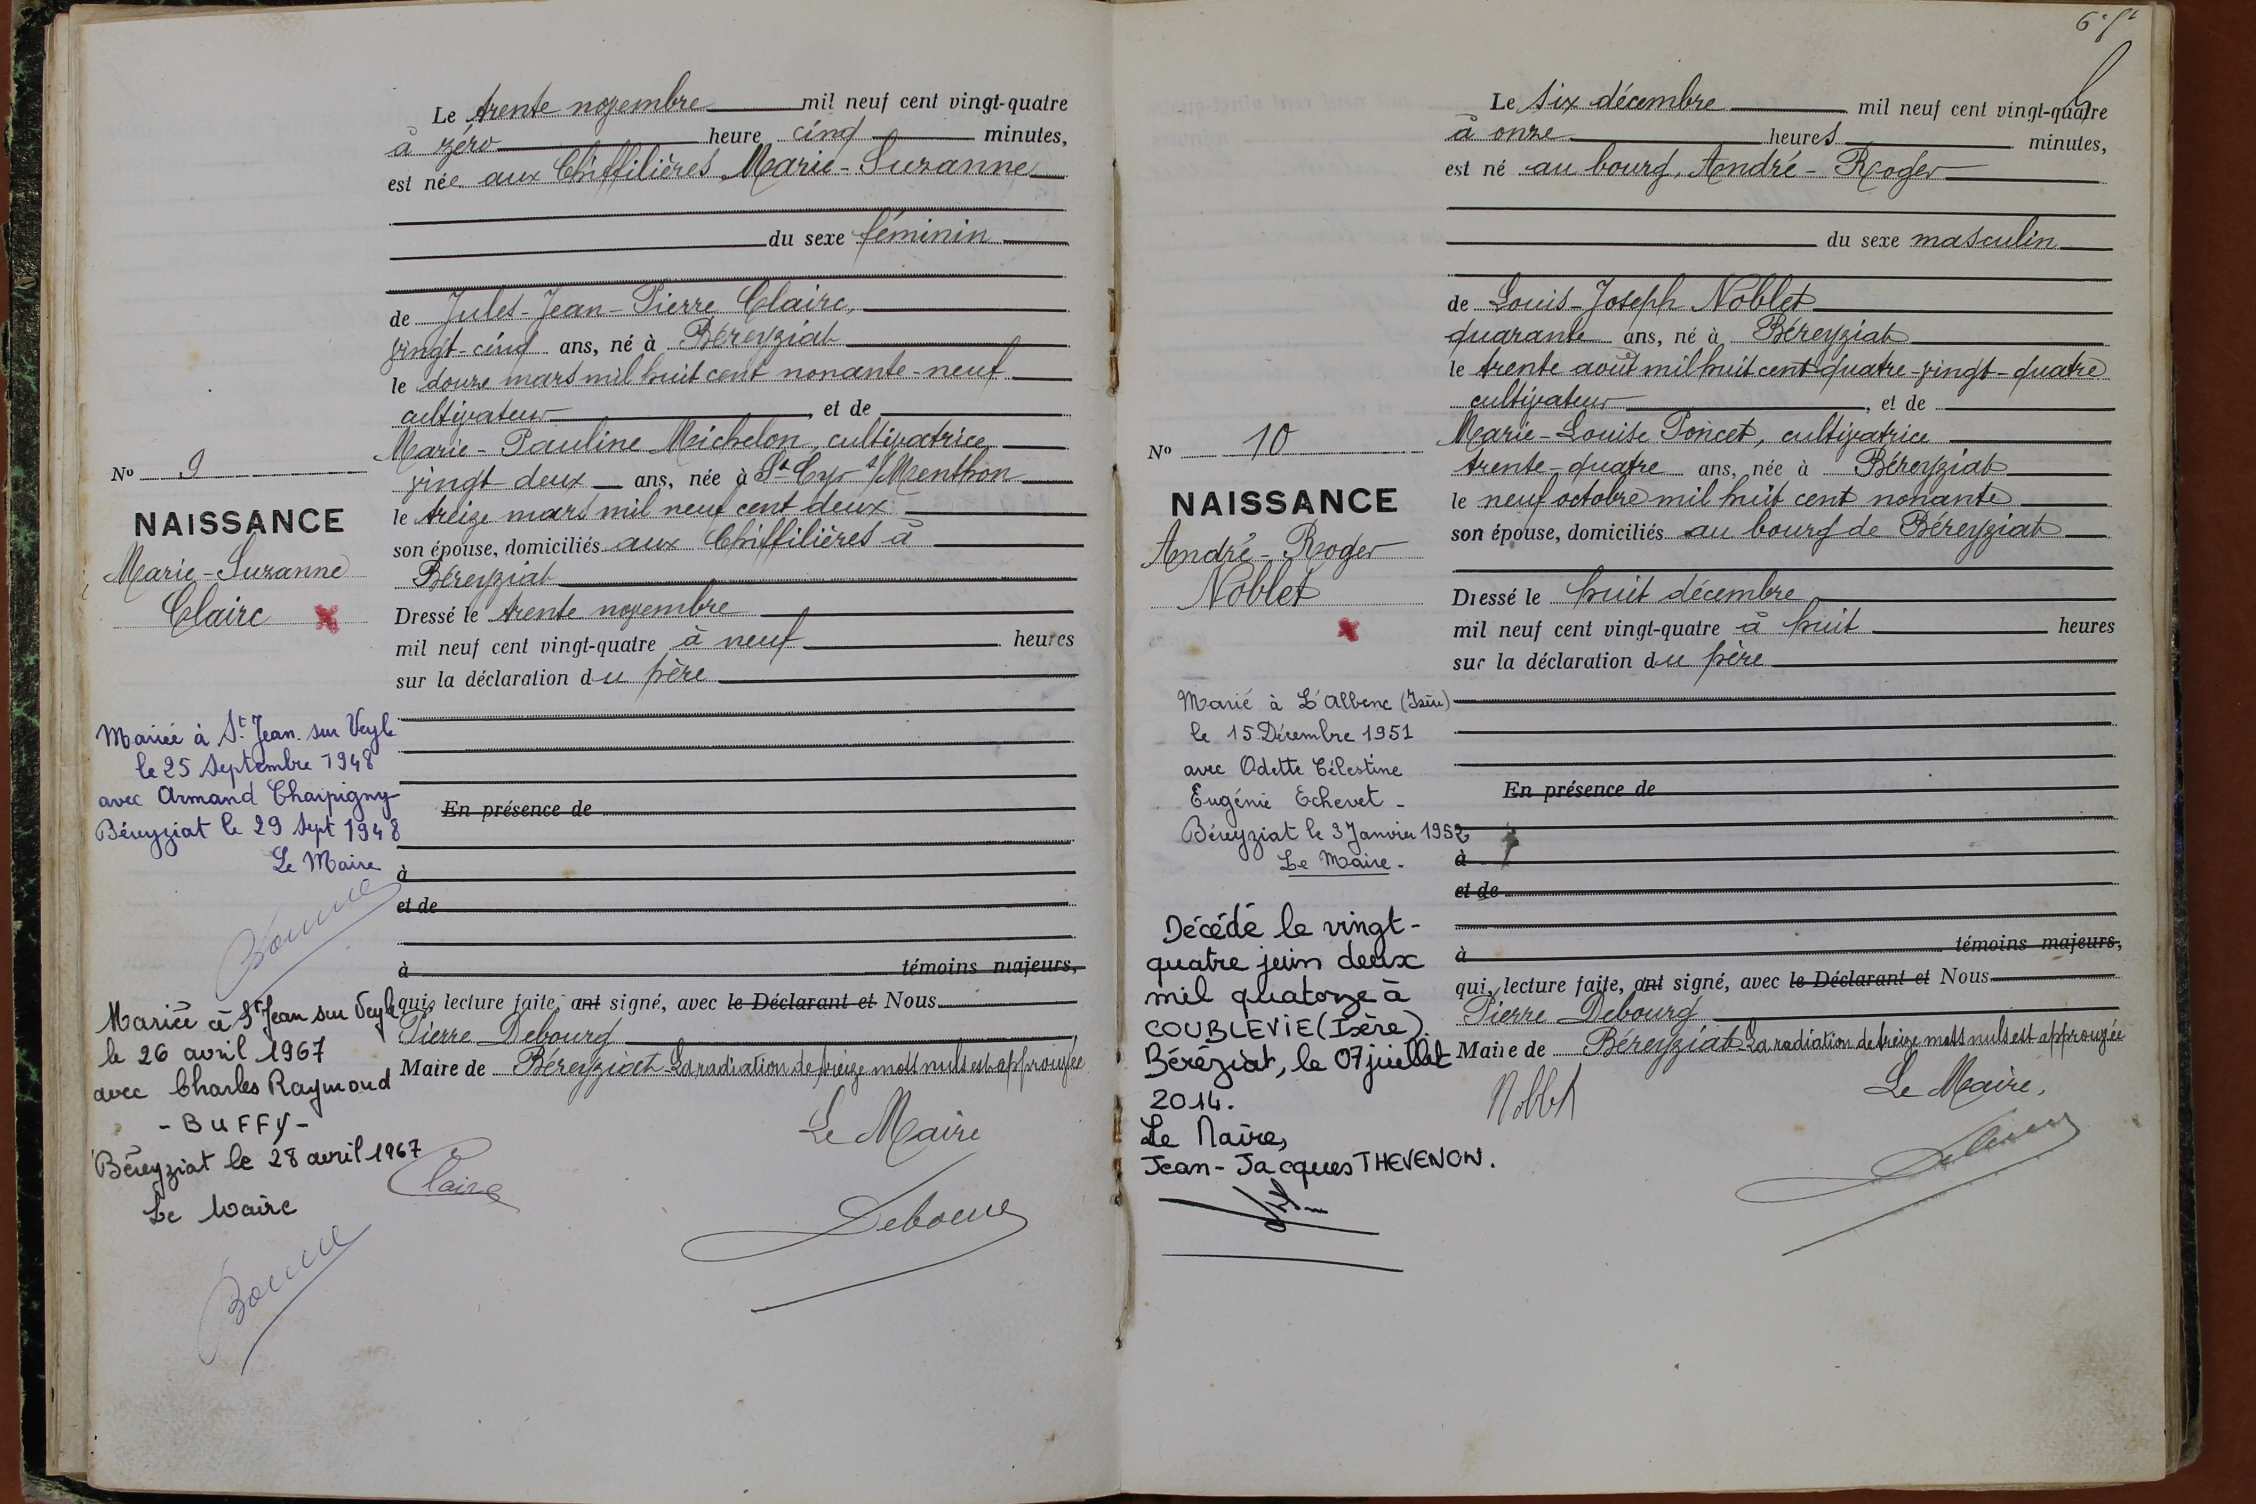 Le trente novembre mil neuf cent vingt-quatre
à zéro heure cinq minutes,
est née aux Chiffilières Marie-Suzanne
du sexe féminin
de Jules-Jean-Pierre Claire,
vingt-cinq ans, né à Béreyziat
le douze mars mil huit cent nonante-neuf
cultivateur, et de
Marie-Pauline Michelon, cultivatrice
vingt-deux ans, née à St Cyr s/Menthon
le treize mars mil neuf cent deux
son épouse, domiciliés aux Chiffilières à
Béreyziat
Dressé le trente novembre
mil neuf cent vingt-quatre à neuf heures
sur la déclaration du père
En présence de
à
et de
à témoins majeurs,
qui, lecture faite, ont signé, avec le Déclarant et Nous
Pierre Debourg
Maire de Béreyziat La radiation de treize mots nuls est approuvée
Le Maire
Claire
No 9
NAISSANCE
Marie-Suzanne
Claire
Mariée à St Jean sur Veyle
le 25 Septembre 1948
avec Armand Charpigny
Béreyziat le 29 Sept 1948
Le Maire
Mariée à St Jean sur Veyle
le 26 avril 1967
avec Charles Raymond
- BUFFY -
Béreyziat le 28 avril 1967
Le Maire
Le six décembre mil neuf cent vingt-quatre
à onze heures minutes,
est né au bourg, André-Roger
du sexe masculin
de Louis-Joseph Noblet
quarante ans, né à Béreyziat
le trente août mil huit cent quatre-vingt-quatre
cultivateur, et de
Marie-Louise Poncet, cultivatrice
trente-quatre ans, née à Béreyziat
le neuf octobre mil huit cent nonante
son épouse, domiciliés au bourg de Béreyziat
Dressé le huit décembre
mil neuf cent vingt-quatre à huit heures
sur la déclaration du père
En présence de
à
et de
à témoins majeurs,
qui, lecture faite, ont signé, avec le Déclarant et Nous
Pierre Debourg
Maire de Béreyziat La radiation de treize mots nuls est approuvée
Le Maire,
Noblet
No 10
NAISSANCE
André-Roger
Noblet
Marié à L'Albenc (Isère)
le 15 Décembre 1951
avec Odette Célestine
Eugénie Echevet -
Béreyziat le 3 Janvier 1952
Le Maire -
Décédé le vingt-
quatre juin deux
mil quatorze à
COUBLEVIE (Isère).
Béréziat, le 07 juillet
2014.
Le Maire,
Jean-Jacques THEVENON.